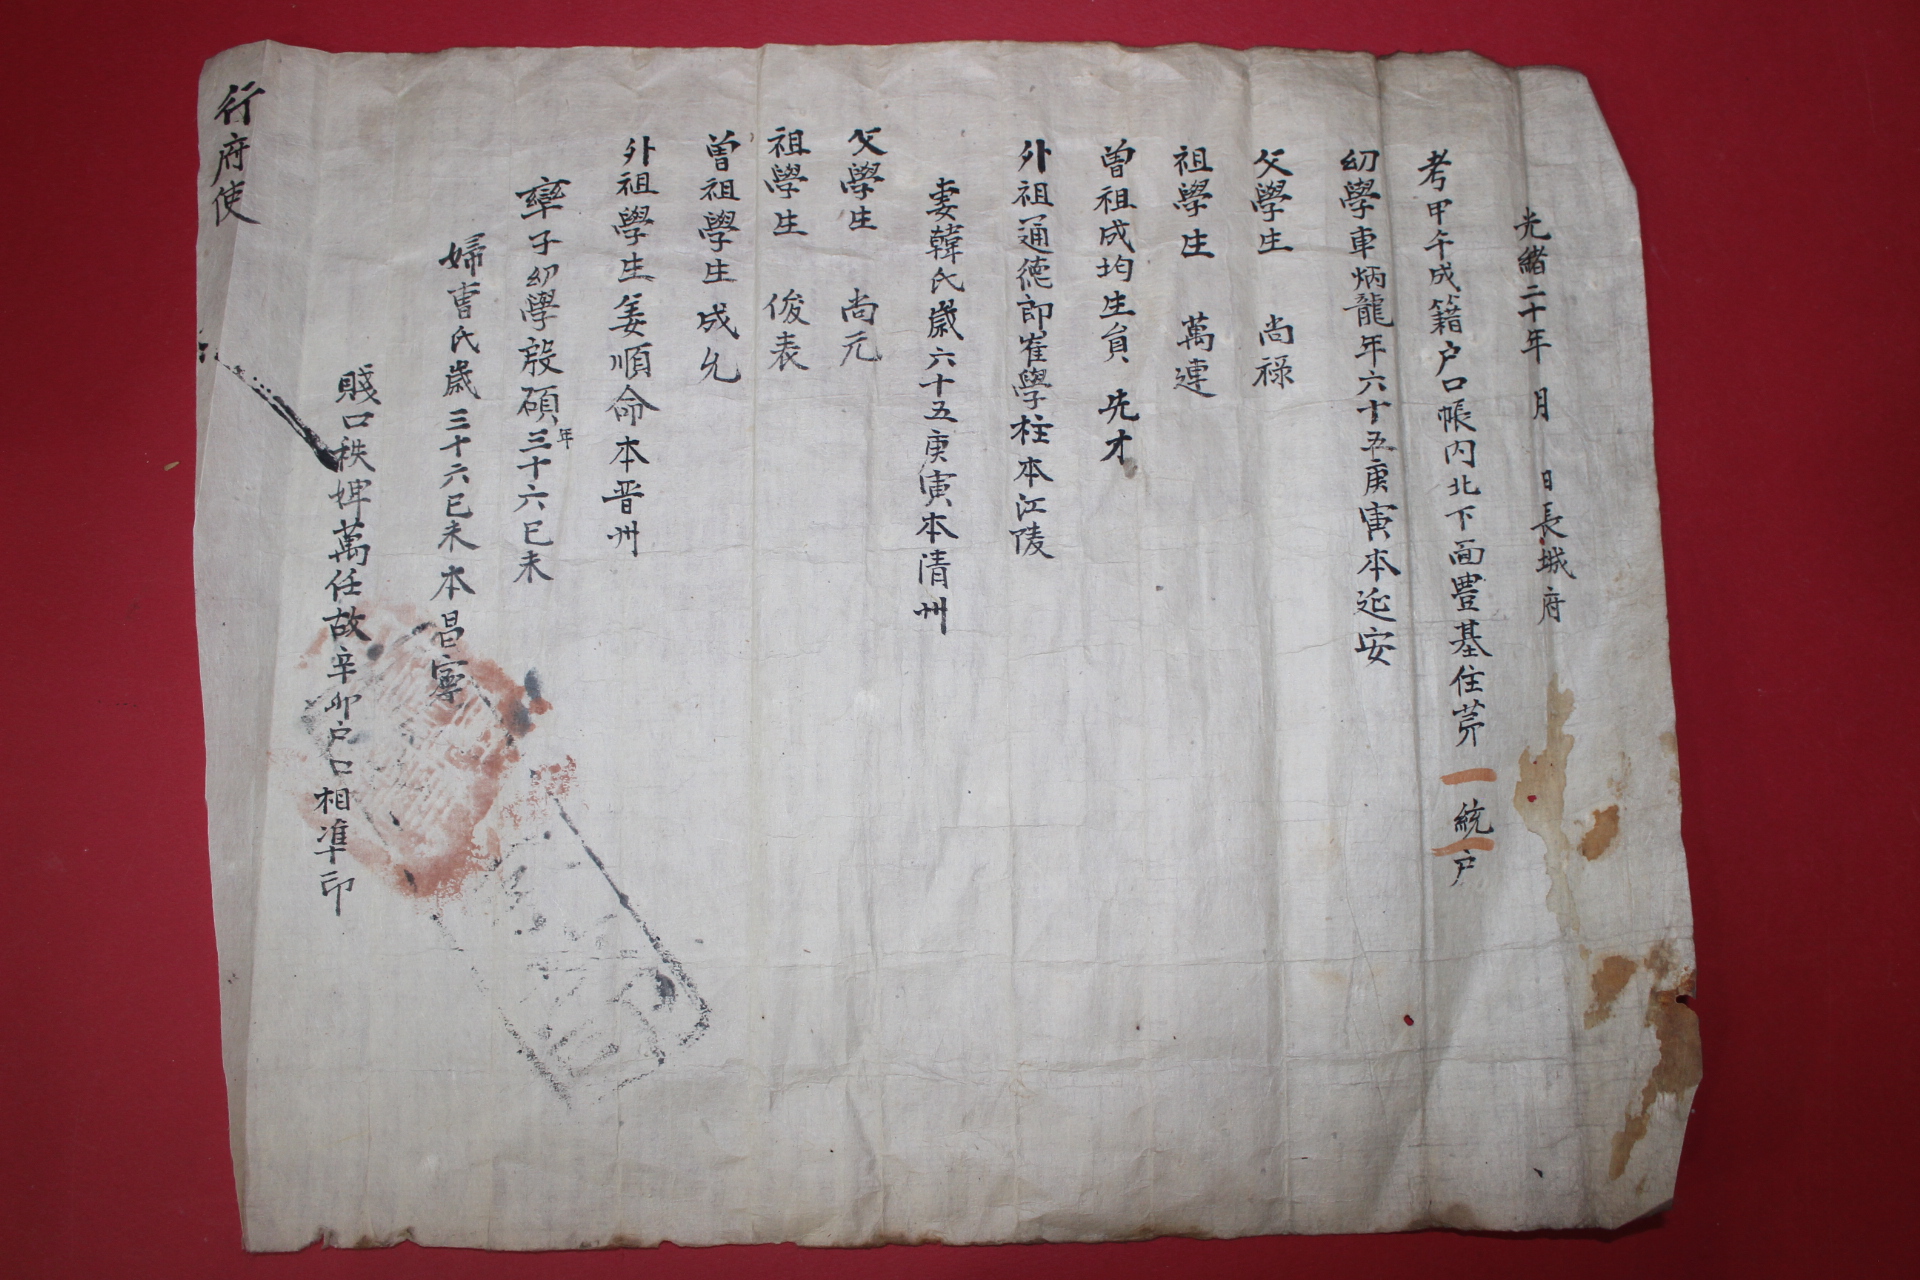 光緒二十年 月 日長城府
考甲午成籍户口帳內北下面豊基住芥一統一户
幼學車炳龍年六十五庚寅本延安
父學生 尚祿
祖學生 萬連
曾祖成均生員 先才
外祖通德郎崔學柱本江陵
妻韓氏歲六十五庚寅本清州
父學生 尚元
祖學生 俊表
曾祖學生 成允
外祖學生姜順命本晋州
率子幼學殷碩年三十六己未
婦曺氏歲三十六己未本昌寧
賤口秩婢萬任故辛卯户口相准印
行府使